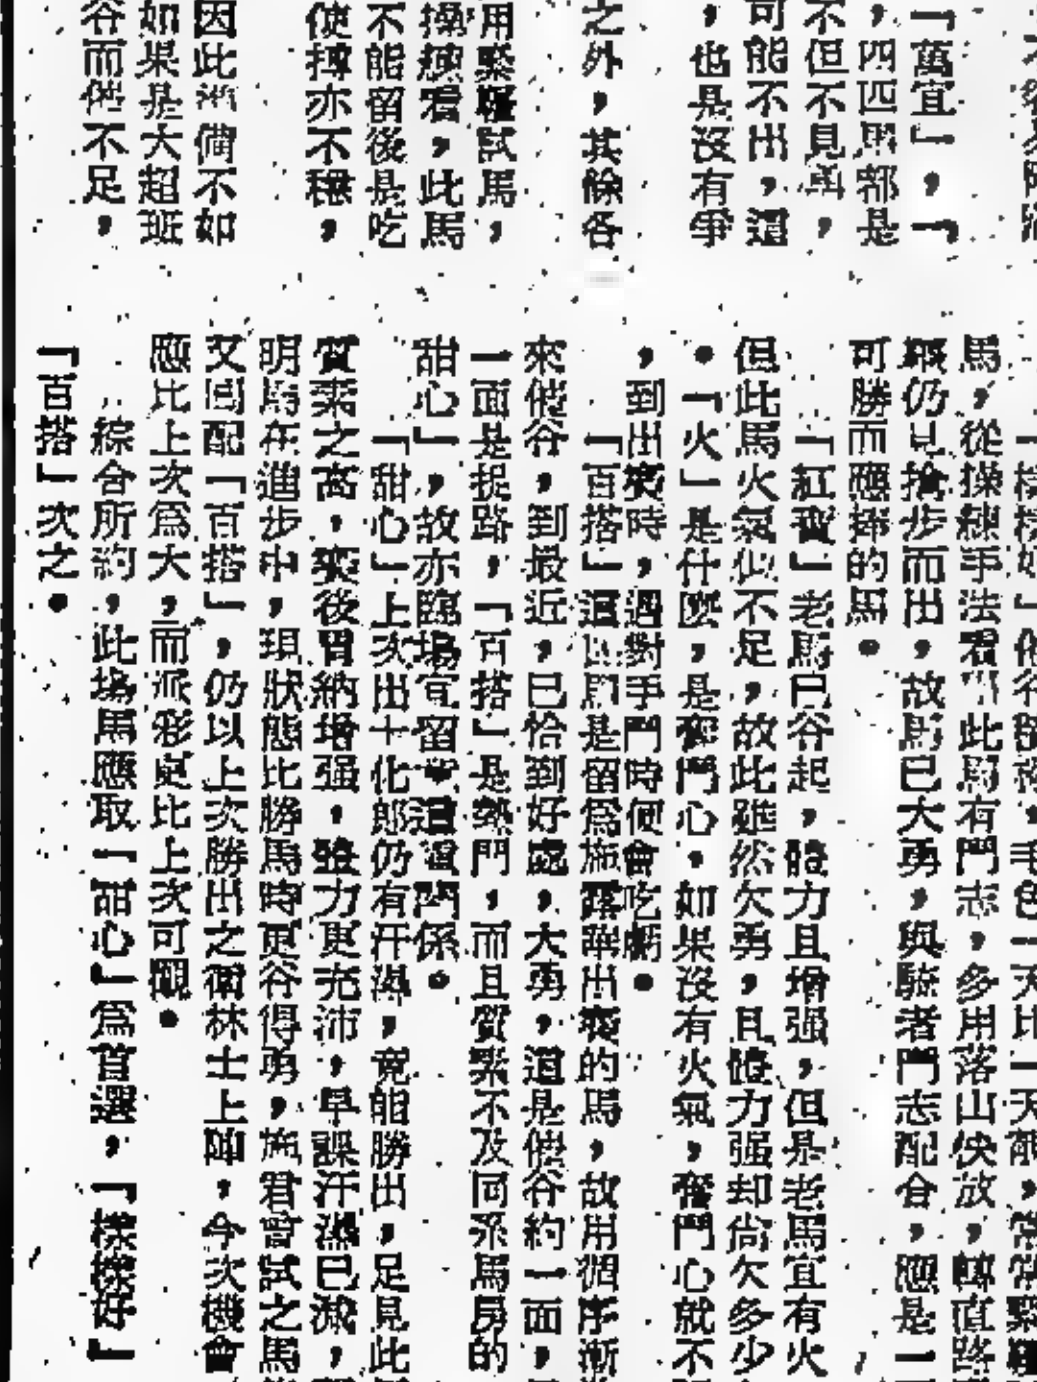 「萬宜」，「
，四四馬都是
不但不見
可能不出，這
，也是沒有爭
之外，其餘各
用緊韁試馬，
操練看，此馬
不能留後是吃
使搏亦不穩，
因此 備不如
如果是大超班
谷而催不足，
馬，從操練手法看 此馬有鬥志，多用落山快放，轉直路
仍見搶步而出，故馬已大勇，與騎者鬥志配合，應是一
可勝而應擇的馬。
「紅寶」老馬已谷起，體力且增强，但是老馬宜有火
但此馬火氣似不足，故此雖然欠勇，且體力强却尚欠多少
。「火」是什麼，是奮鬥心。如果沒有火氣，奮鬥心就不
，到出賽時，遇對手鬥時便會吃虧。
「百搭」這匹馬是留爲施露華出賽的馬，故用循序漸
來催谷，到最近，已恰到好處，大勇，這是催谷約一面，
一面是捉路，「百搭」是熱門，而且質素不及同系馬房的
甜心」，故亦臨場宜留 這 關係。
「甜心」上次出十化郎仍有汗濕，竟能勝出，足見此
質素之高，賽後胃納增强，雖力更充沛，早課汗濕已減，
明馬在進步中，現狀態比勝馬時更谷得勇，施君曾試之馬
又回配「百搭」，仍以上次勝出之衛林士上陣，今次機會
應比上次爲大，而派彩更比上次可觀。
綜合所約，此場馬應取「甜心」爲首選，「樣樣好」
「百搭」次之。